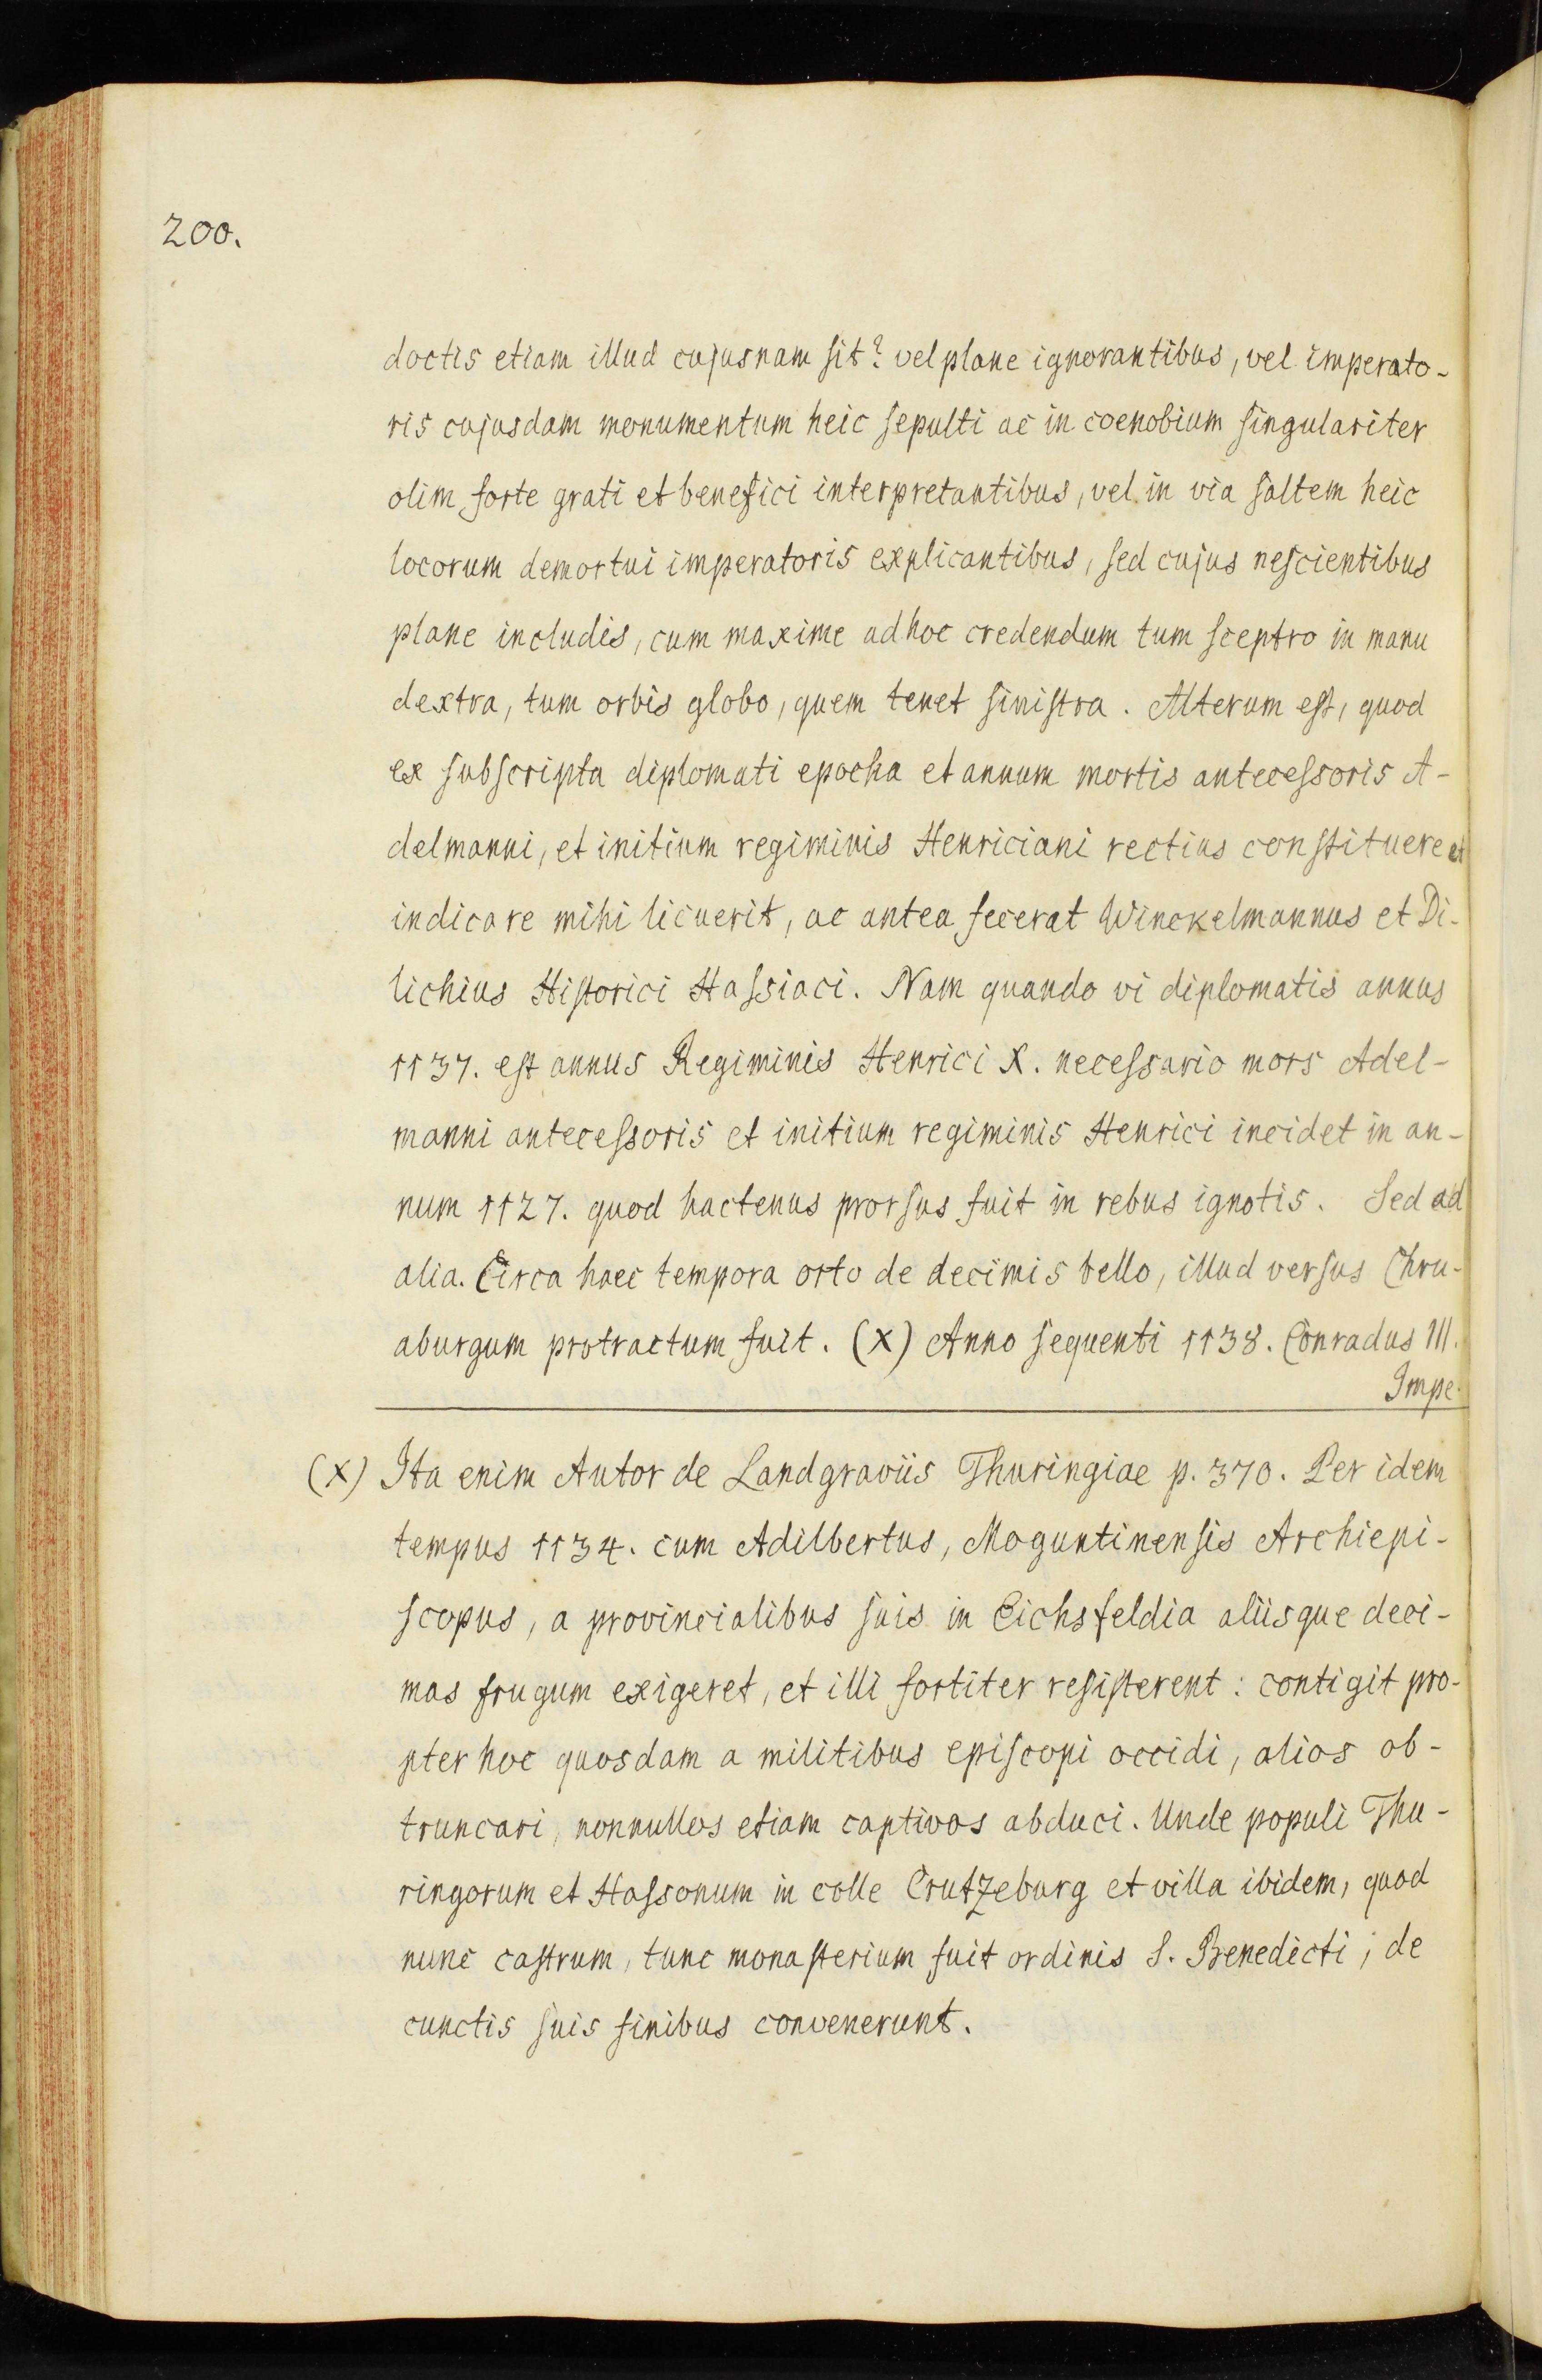 200.
doctis etiam illud cujusnam sit? vel plane ignorantibus, vel imperato-
ris cujusdam monumentum heic sepulti ac in coenobium singulariter
olim forte grati et benefici interpretantibus, vel in via saltem heic
locorum demortui imperatoris explicantibus, sed cujus nescientibus
plane includis, cum maxime adhoc credendum tum sceptro in manu
dextra, tum orbis globo, quem tenet sinistra. Alterum est, quod
ex subscripta diplomati epocha et annum mortis antecessoris A-
delmanni, et initium regiminis Henriciani rectius constituere et
indicare mihi licuerit, ac antea fecerat Winckelmannus et Di-
lichius Historici Hassiaci. Nam quando vi diplomatis annus
1137. est annus Regiminis Henrici X. necessario mors Adel-
manni antecessoris et initium regiminis Henrici incidet in an-
num 1127. quod hactenus prorsus fuit in rebus ignotis. Sed ad
alia. Circa haec tempora orto de decimis bello, illud versus Chru-
aburgum protractum fuit. (X) Anno sequenti 1138. Conradus III.
Impe-
(X) Ita enim Autor de Landgraviis Thuringiae p. 370. Per idem
tempus 1134. cum Adilbertus, Moguntinensis Archiepi-
scopus, a provincialibus suis in Eichsfeldia aliisque deci-
mas frugum exigeret, et illi fortiter resisterent: contigit pro-
pter hoc quosdam a militibus episcopi occidi, alios ob-
truncari, nonnullos etiam captivos abduci. Unde populi Thu-
ringorum et Hassonum in colle Crutzeburg et villa ibidem, quod
nunc castrum, tunc monasterium fuit ordinis S. Benedicti, de
cunctis suis finibus convenerunt.